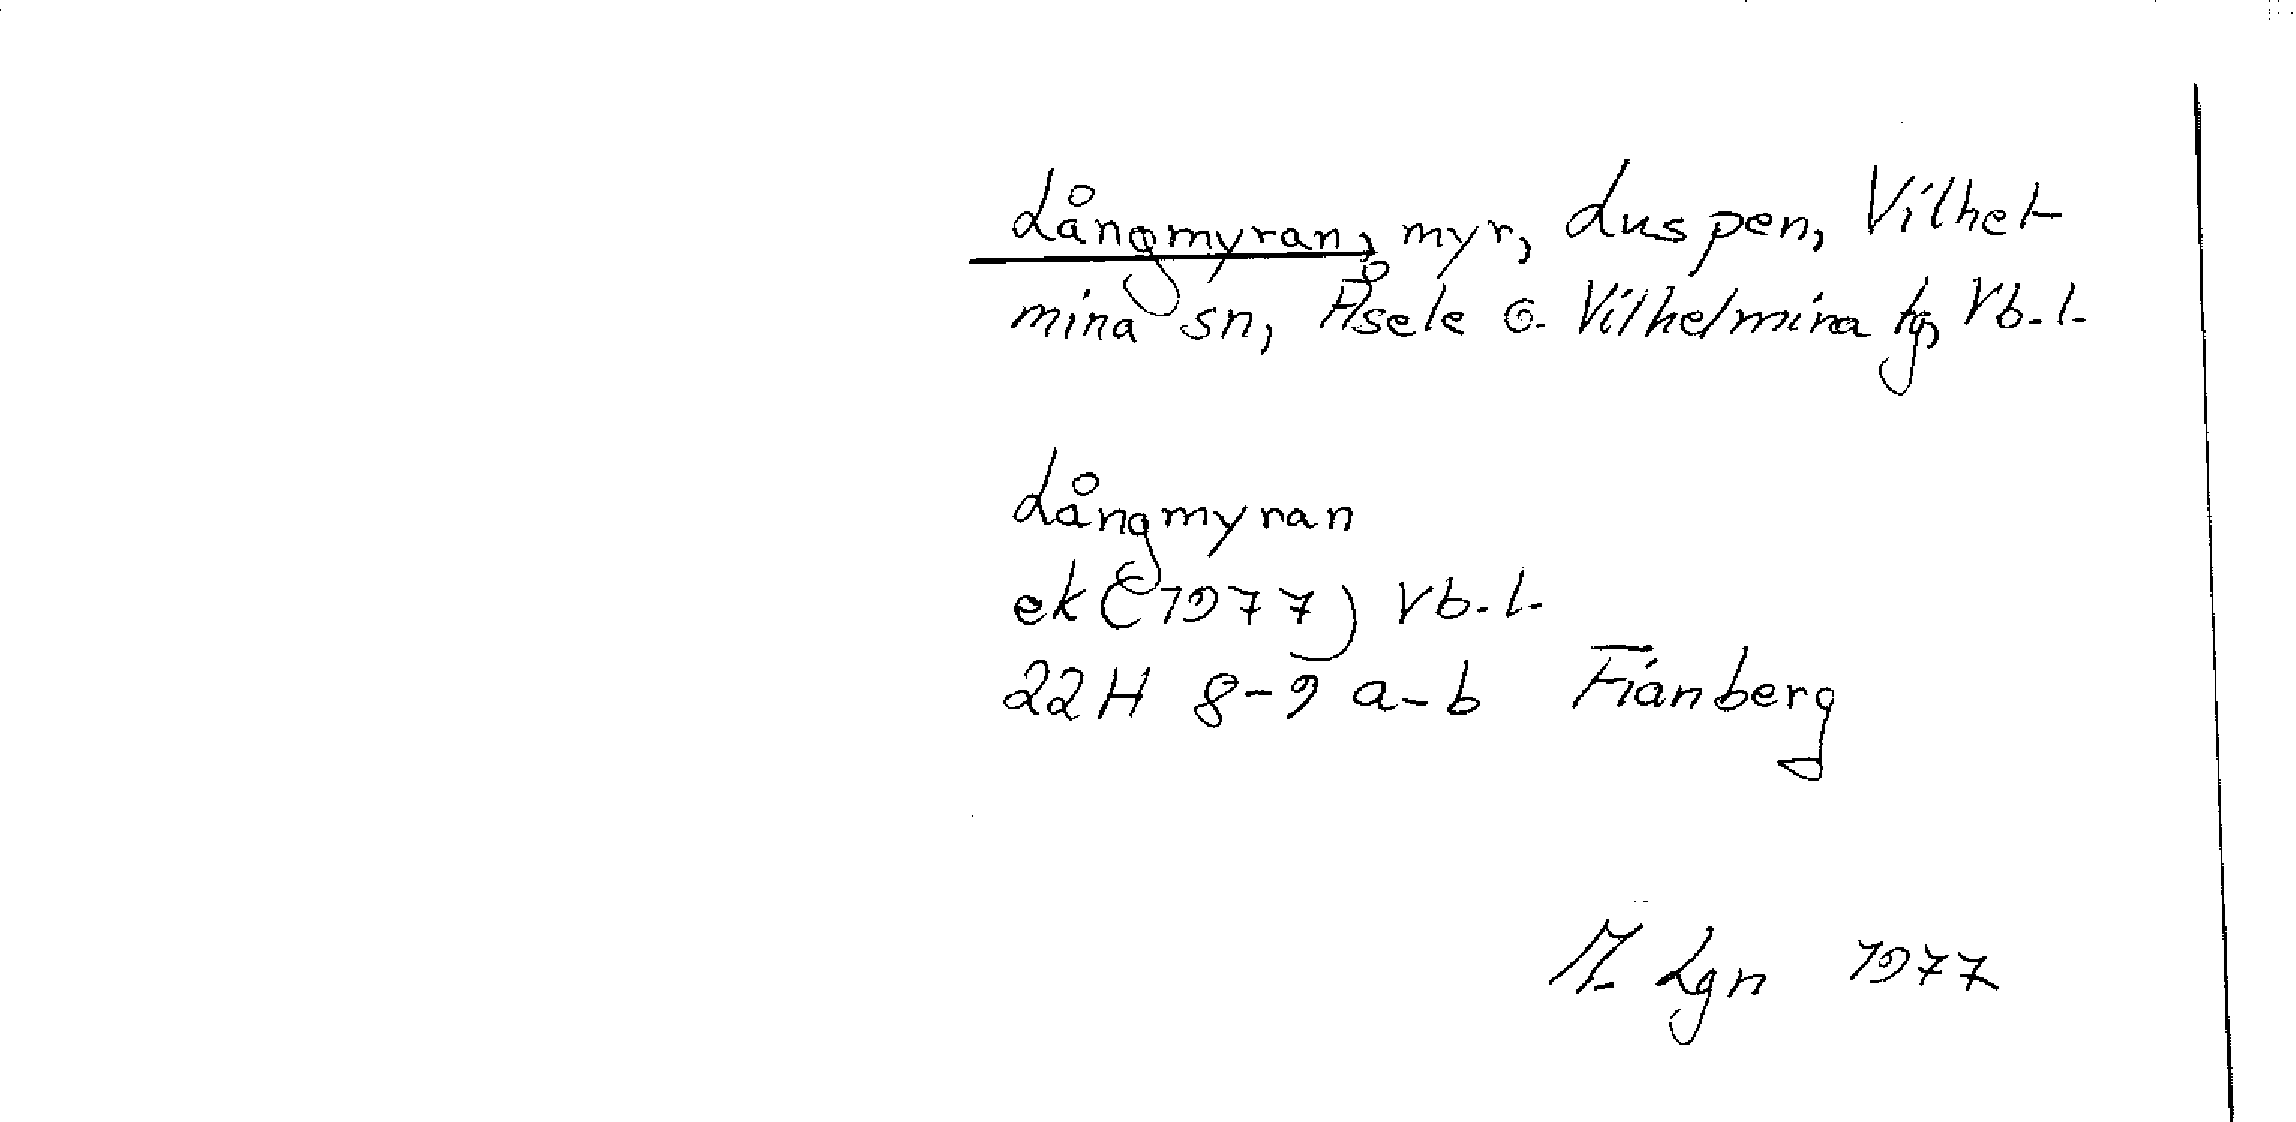 Långmyran, myr, Luspen, Vilhel-
mina sn, Åsele o. Vilhelmina tg, Vb.l.
Långmyran
ek (1977) Vb.l.
22H 8-9 a-b Fianberg
M. Lgn 1977